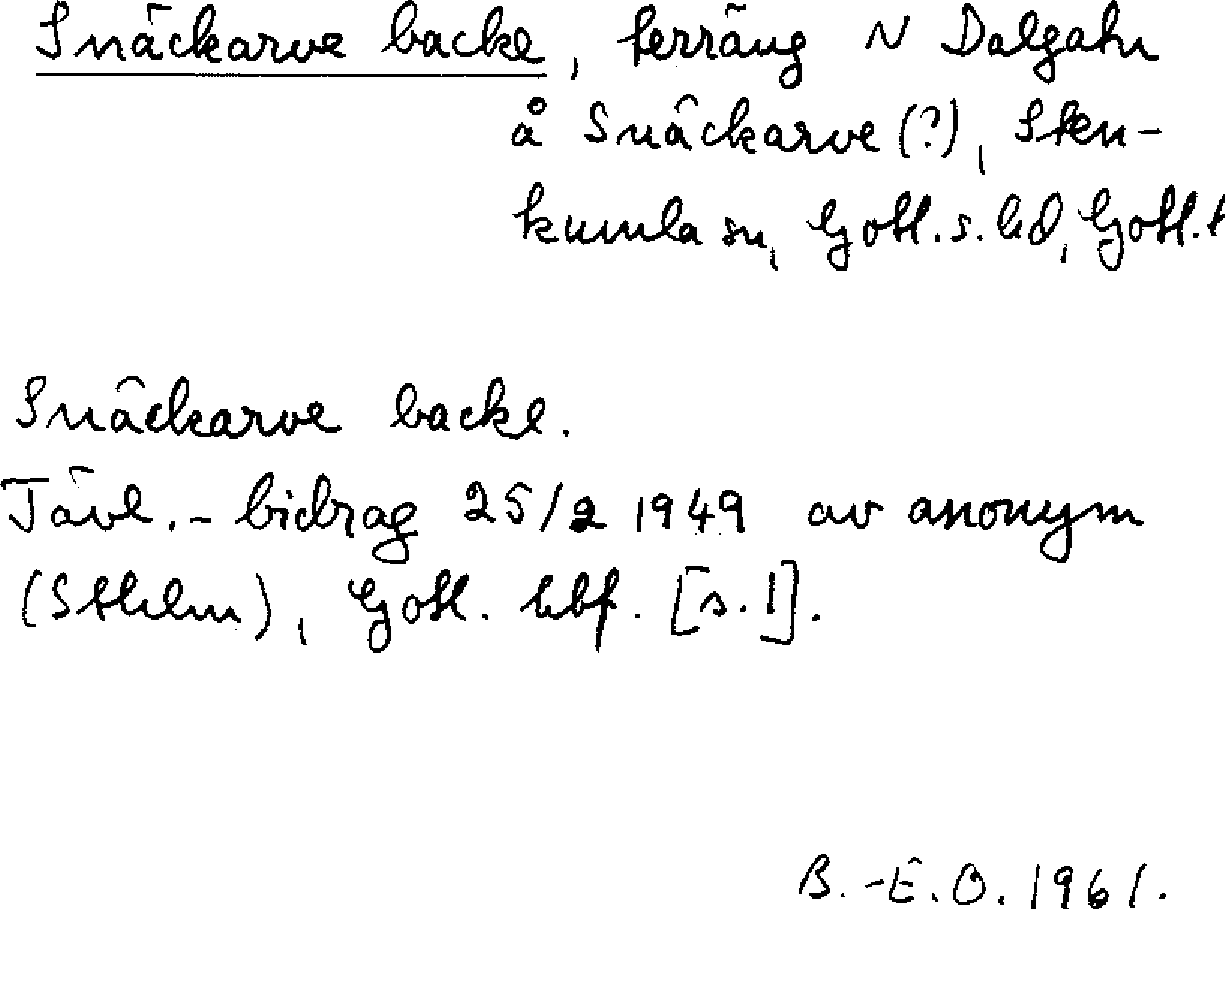 Snäckarve backe, terräng N Dalgahn
å Snäckarve (?), Sten-
kumla sn, Gotl. s. hd, Gotl. l
Snäckarve backe.
Tävl.- bidrag 25/2 1949 av anonym
(Sthlm), Gotl. hbf. [s. 1].
B.-E. O. 1961.